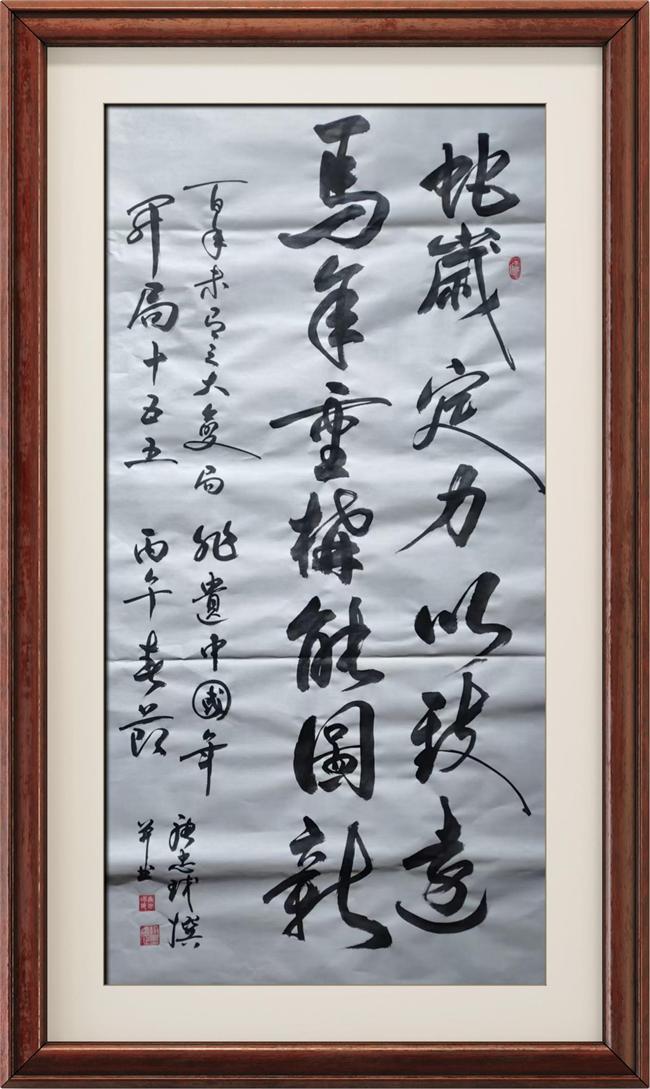 蛇歲定力以致遠
馬年重構能圖新
百年未有之大變局 非遺中國年
開局十五五 丙午春節
忠球撰
并書